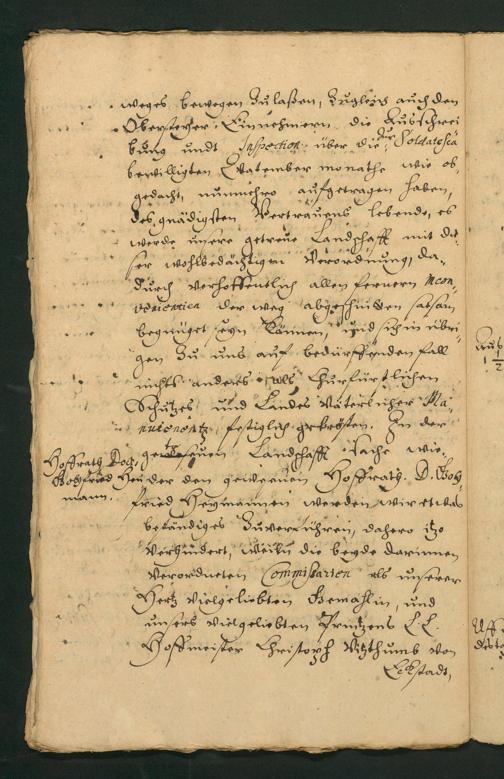 weges bewegen Zulaßen, Zugleich auch den
Obersteyer-Einnehmern die Außschrei
bung undt Inspection über die Zur Soldatesca
bewilligten Quatember monathe wie ob-
gedacht, nunmehro aufgetragen haben,
des gnädigsten Vertrauens lebende, es
werde unsere getreue Landschafft mit die-
ser wohlbedächtigen Verordnung, da-
durch verhoffentlich allen fernern incon-
venientien der weg abgeschnitten sattsam
begnüget seyn können, und sich im übri-
gen Zu uns auf bedürffenden fall
nichts anders als Churfürstlichen
Schutzes und Landes Väterlicher Ma-
nutenentz festiglich getrösten. In der
getreuen Landschafft Sache wie-
der den gewesenen Hoffrath D. Gott-
fried Heymannen werden wir etwas
beständiges Zuverführen, dahero itzo
verhindert, weiln die beyde darinnen
verordneten Commissarien als unserer
Hertz vielgeliebten Gemahlin, und
unsers vielgeliebten Printzens L. L.
Hoffmeister Christoph Vitzthumb von
Eckstadt,
Hoffrath Doct.
Gottfried Hey
mann.
Auß
1 1/2
Uff